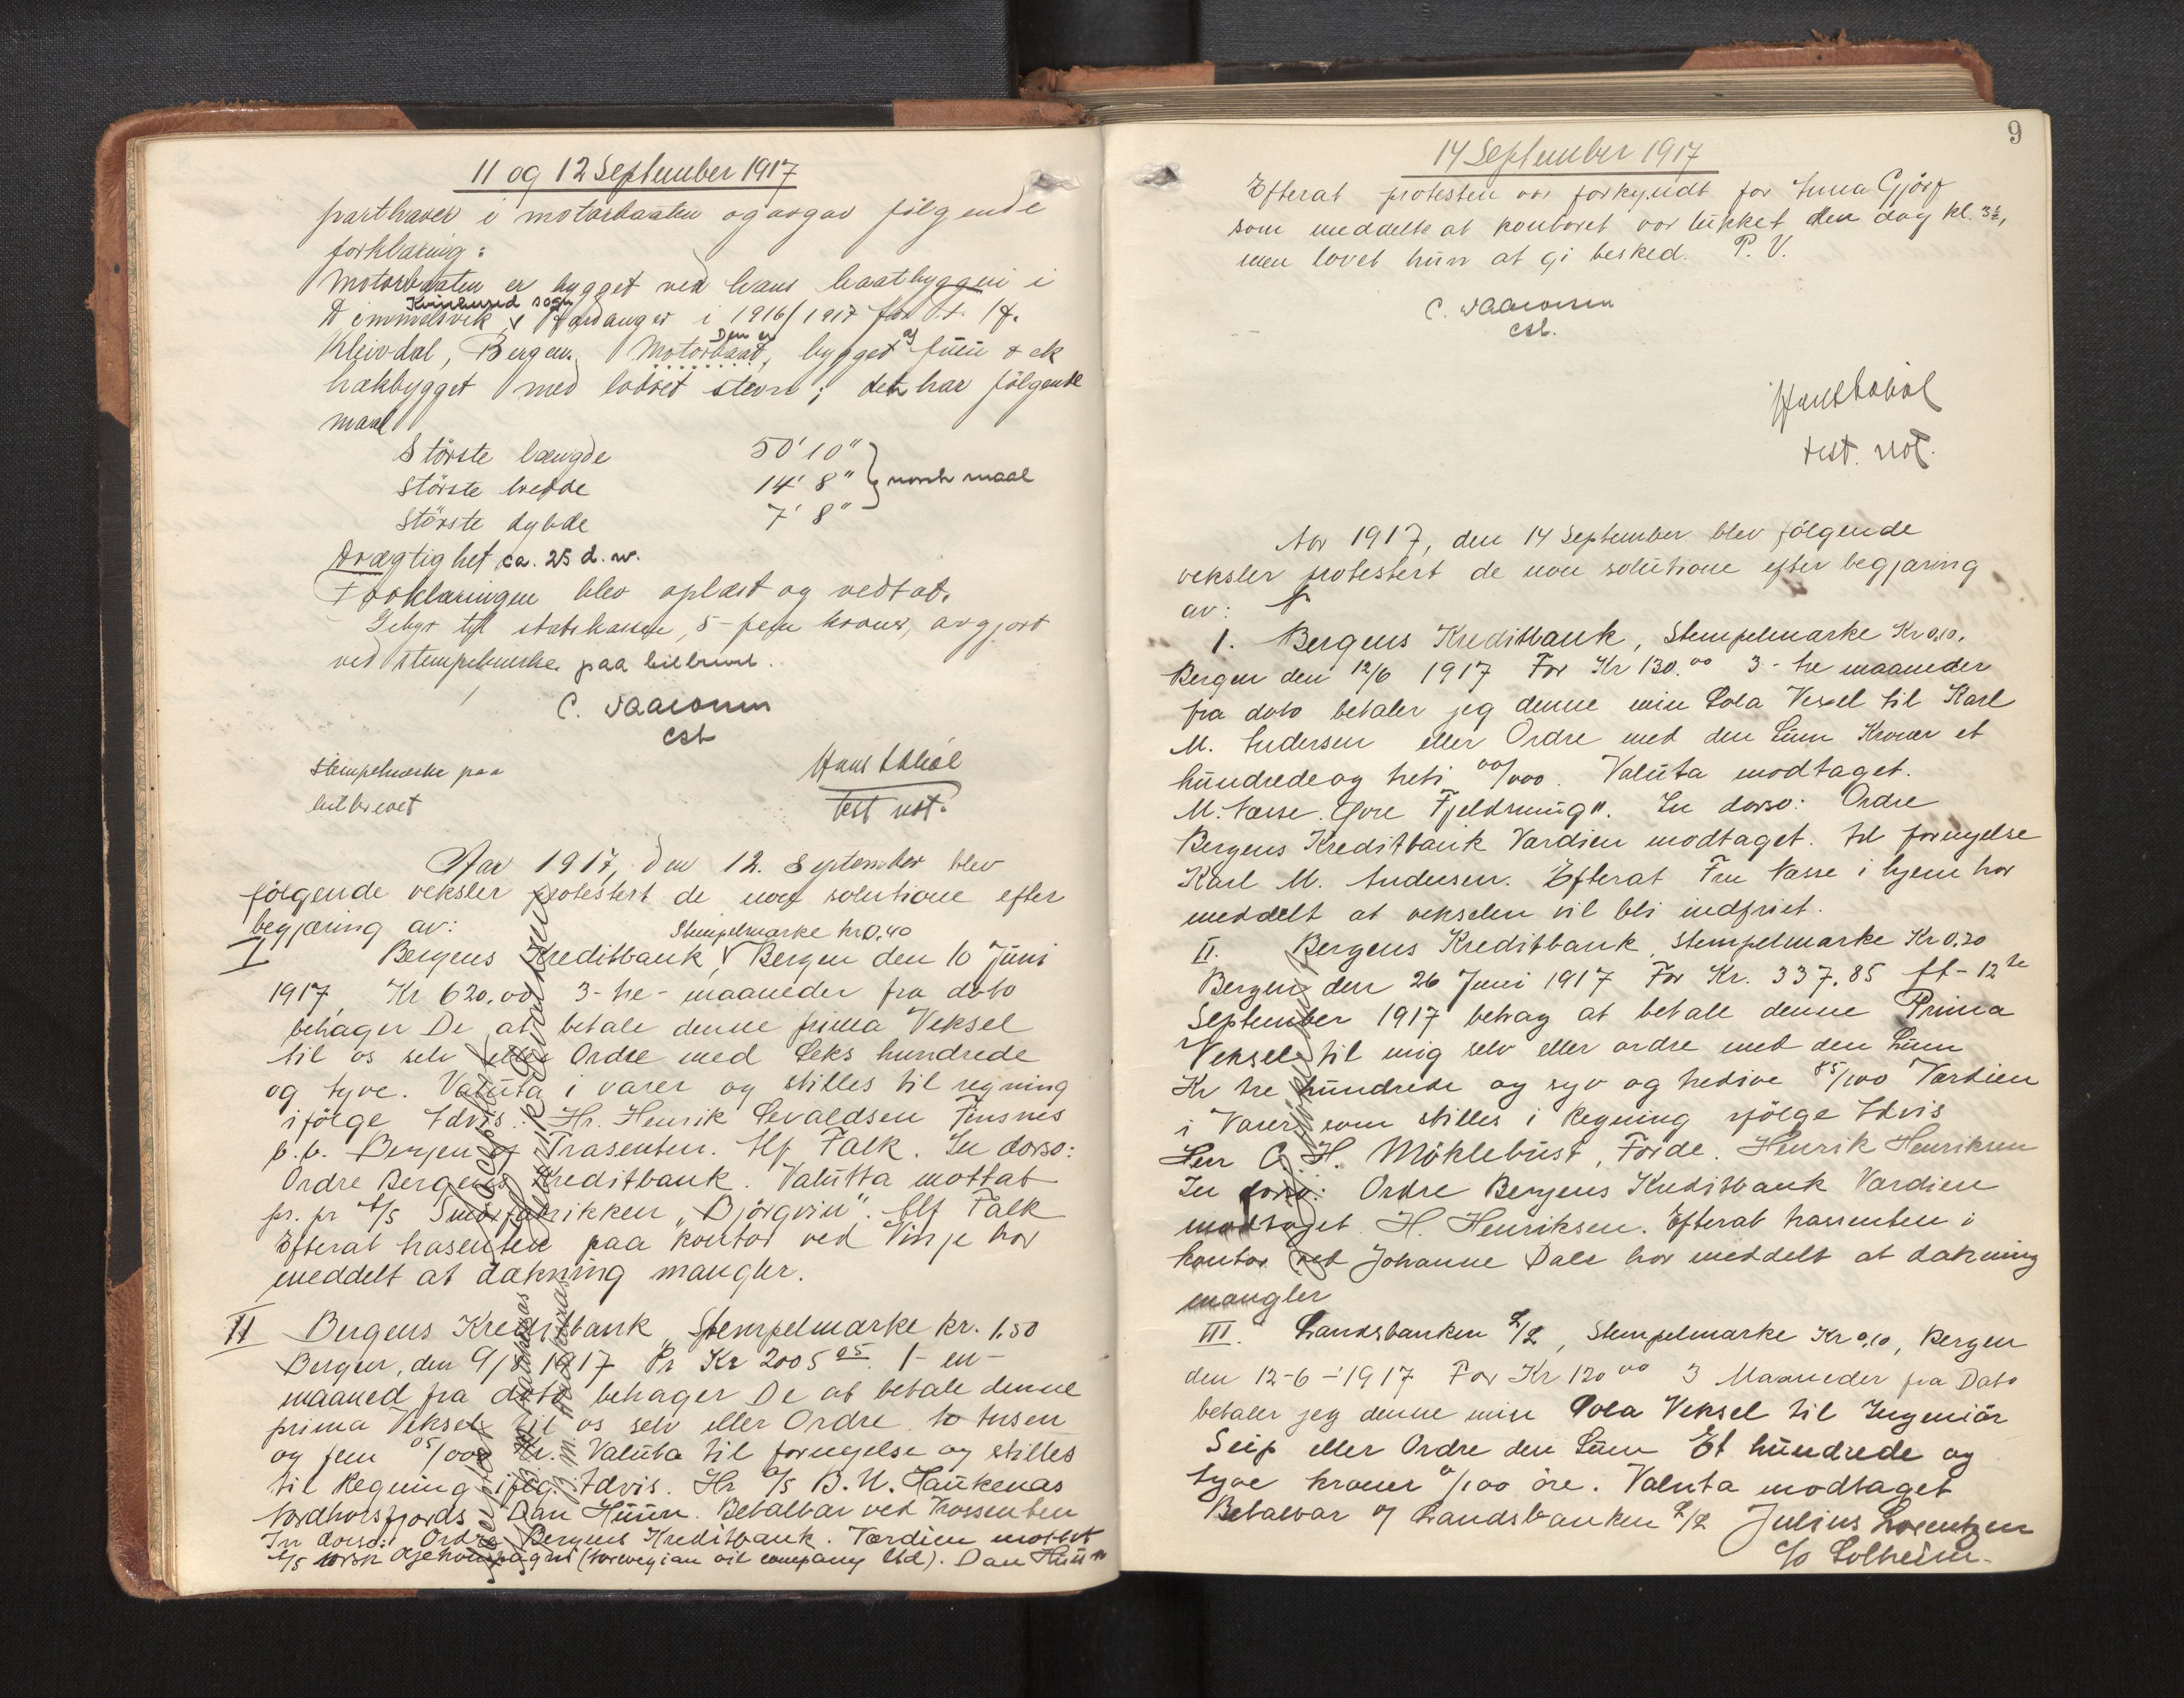 11 og 12 September 1917
parthaver i motorbaaten og avgav følgende
forklaring:
Motorbaaten er bygget ved hans baatbyggeri i
Kvinherred sogn
Dimmelsvik, Hardanger i 1916/1917 for
Den er av
Kleivdal, Bergen. Motorbaat, bygget furu & ek
hækbygget med lodret stevn; den har følgende
maal
Største længde 50' 10"
Største bredde 14' 8" } norsk maal
Største dybde 7' 8"
Drægtighet ca. 25 d. w.
Forklaringen blev oplæst og vedtat.
Gebyr til statskassen, 5 - fem kroner, avgjort
ved stempelmerke paa bilbrevet.
C. Isaachsen
cst
stempelmerke paa
bilbrevet
test not.
Aar 1917, den 12. September blev
følgende veksler protestert de non solutione efter
begjæring av: Stempelmærke kr 0,40
I Bergens Kreditbank, Bergen den 10 Juni
1917 Kr 620,00 3 - tre - maaneder fra dato
behager De at betale denne prima Veksel
til os selv eller Ordre med Seks hundrede
og tyve. Valuta i varer og stilles til regning
ifølge Advis. Hr. Henrik Sevaldsen Finsnes
p.t. Bergen Trasenten. Alf Falk. In dorso:
Ordre Bergens Kreditbank. Valutta mottat
pr. pr A/S Smørfabrikken "Bjørgvin". Alf Falk
Efterat trasenten paa kontor ved Vinje har
meddelt at dækning mangler.
II Bergens Kreditbank, Stempelmærke kr. 1.50
Bergen, den 9/8 1917 Pr Kr 2005 05. 1 - en -
maaned fra dato behager De at betale denne
prima Veksel til os selv eller Ordre to tusen
og fem 05/00 Kr. Valuta til fornyelse og stilles
til Regning iflg. Advis. Hr A/S B. N. Haukenæs
Nordhorsfjords Dan Huun. Betalbar ved Trassenten
In dorso: Ordre Bergens Kreditbank. Værdien mottat
A/S Norsk Oljekompagni (Norwegian oil company ltd). Dan Huun
9
14 September 1917
Efterat protesten var forkyndt for Anna Gjørf
som meddelte at kontoret var lukket den dag kl. 3½,
men lovet hun at gi besked. P. V.
C. Isaachsen
cst.
test. not.
Aar 1917, den 14 September blev følgende
veksler protestert de non solutione efter begjæring
av:
1. Bergens Kreditbank, Stempelmærke Kr 0,10.
Bergen den 12/6 1917 For Kr 130.00 3 - tre maaneder
fra dato betaler jeg denne min Sola Vexel til Karl
M. Andersen eller Ordre med den Sum Kroner et
hundrede og treti 00/000. Valuta modtaget.
M. Næsse. Øvre Fjeldsmug 11. In dorso: Ordre
Bergens Kreditbank Værdien modtaget. til fornyelse
Karl M. Andersen. Efterat Fru Næsse i hjem har
meddelt at vekselen vil bli indfriet.
II. Bergens Kreditbank, Stempelmærke Kr 0,20
Bergen den 26 Juni 1917 For Kr. 337.85 tt - 12te
September 1917 behag at betale denne Prima
Veksel til mig selv eller ordre med den Sum
Kr tre hundrede og syv og tredive 85/100 Værdien
i Varer som stilles i Regning ifølge Advis
Herr C. H. Møklebust, Førde. Henrik Henriksen
In dorso: Ordre Bergens Kreditbank Værdien
modtaget. H. Henriksen. Efterat trassenten i
kontor ved Johanne Dale har meddelt at dækning
mangler
III. Landsbanken A/S, Stempelmærke Kr 0,10, Bergen
den 12-6-1917 For Kr 120 00 3 Maaneder fra Dato
betaler jeg denne min Sola Veksel til Ingeniør
Seip eller Ordre den Sum Et hundrede og
tyve kroner 0/100 øre. Valuta modtaget
Betalbar i Landsbanken A/S Julius Lorentzen
c/o Solheim.